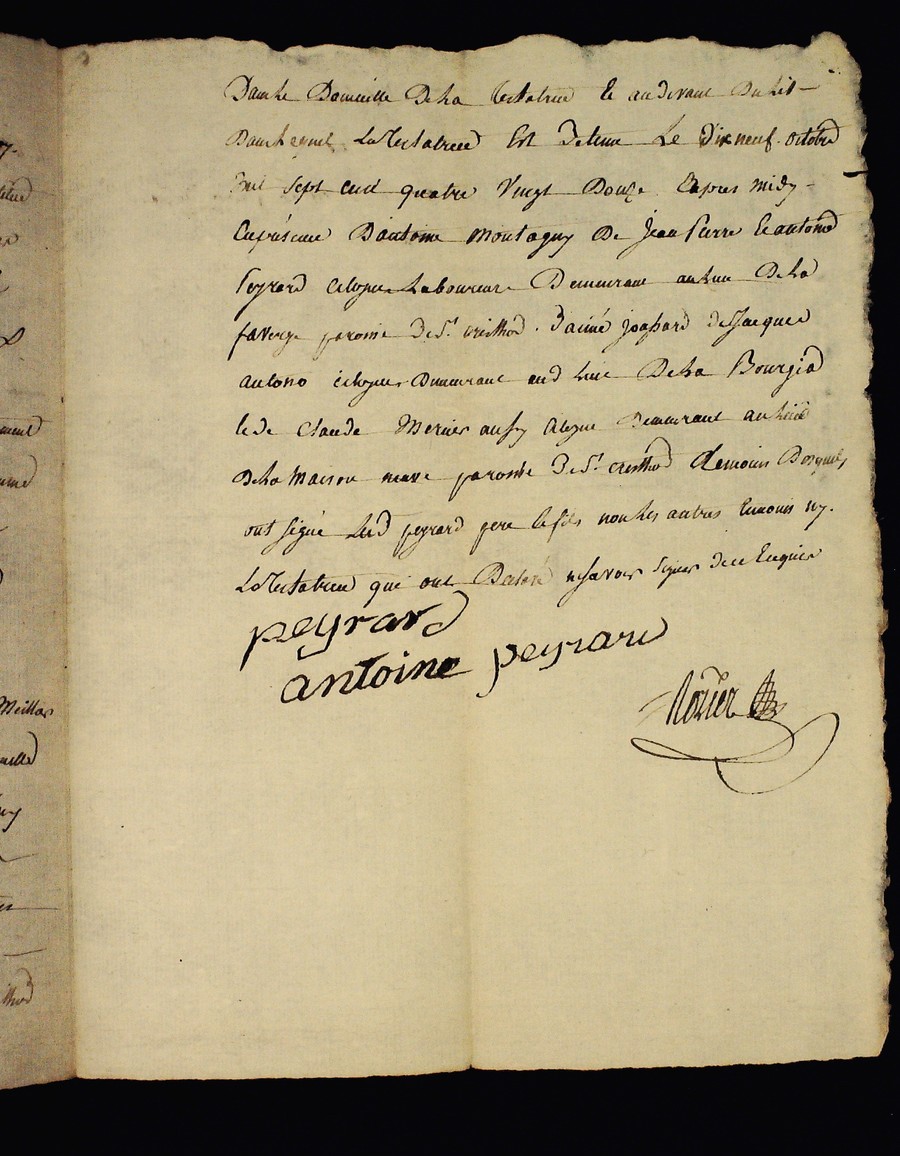 Dans le Domicille De la testatrice & au devant Du lit
Dans lequel La Testatrice Est Detenue Le Dix neuf octobre
mil sept cent quatre Vingt Douze apres midy
En presence D'antoine montagny De Jean Pierre & antoine
Peyrard citoyens Laboureurs Demeurant au lieu De la
faverge paroisse De St. cristhod
antoine citoyen Demeurant aud lieu De la Bourgia
& de Claude Mernier aussy citoyen Demeurant au lieu
De la maison neuve paroisse De St. cristhod temoins
ont signé Lesd peyrard pere & fils non les autres temoins ny
La Testatrice qui ont Declaré ne savoir signer de ce Enquis
peyrard
antoine peyrard